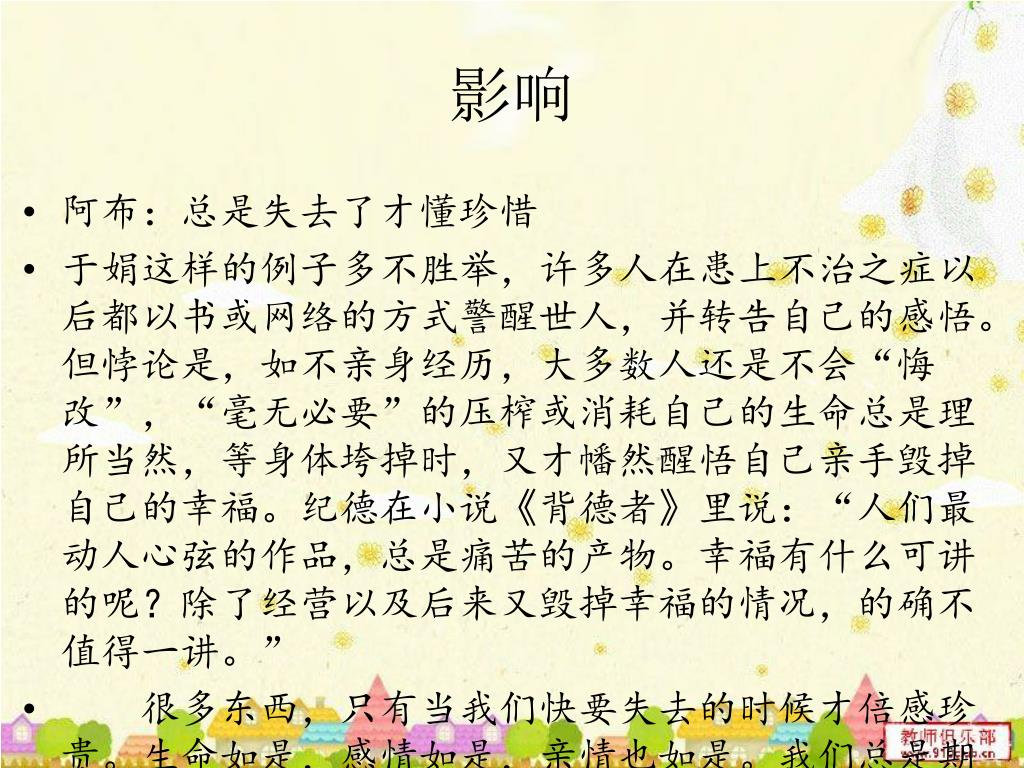 影响
• 阿布：总是失去了才懂珍惜
• 于娟这样的例子多不胜举，许多人在患上不治之症以
后都以书或网络的方式警醒世人，并转告自己的感悟。
但悖论是，如不亲身经历，大多数人还是不会“悔
改”，“毫无必要”的压榨或消耗自己的生命总是理
所当然，等身体垮掉时，又才幡然醒悟自己亲手毁掉
自己的幸福。纪德在小说《背德者》里说：“人们最
动人心弦的作品，总是痛苦的产物。幸福有什么可讲
的呢？除了经营以及后来又毁掉幸福的情况，的确不
值得一讲。”
• 很多东西，只有当我们快要失去的时候才倍感珍
贵。生命如是，感情如是，亲情也如是。我们总是期
教师俱乐部